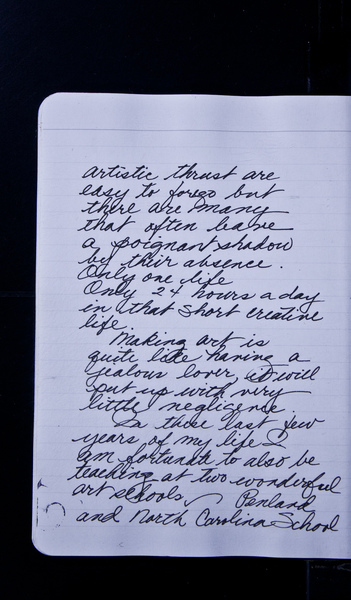 artistic thrust are
easy to forego but
there are many
that often leave
a poignant shadow
by their absence.
Only one life
Only 24 hours a day
in that short creative
life.
Making art is
quite like having a
jealous lover, it will
put up with very
little negligence.
In these last few
years of my life I
am fortunate to also be
teaching at two wonderful
art schools, Penland
and North Carolina School